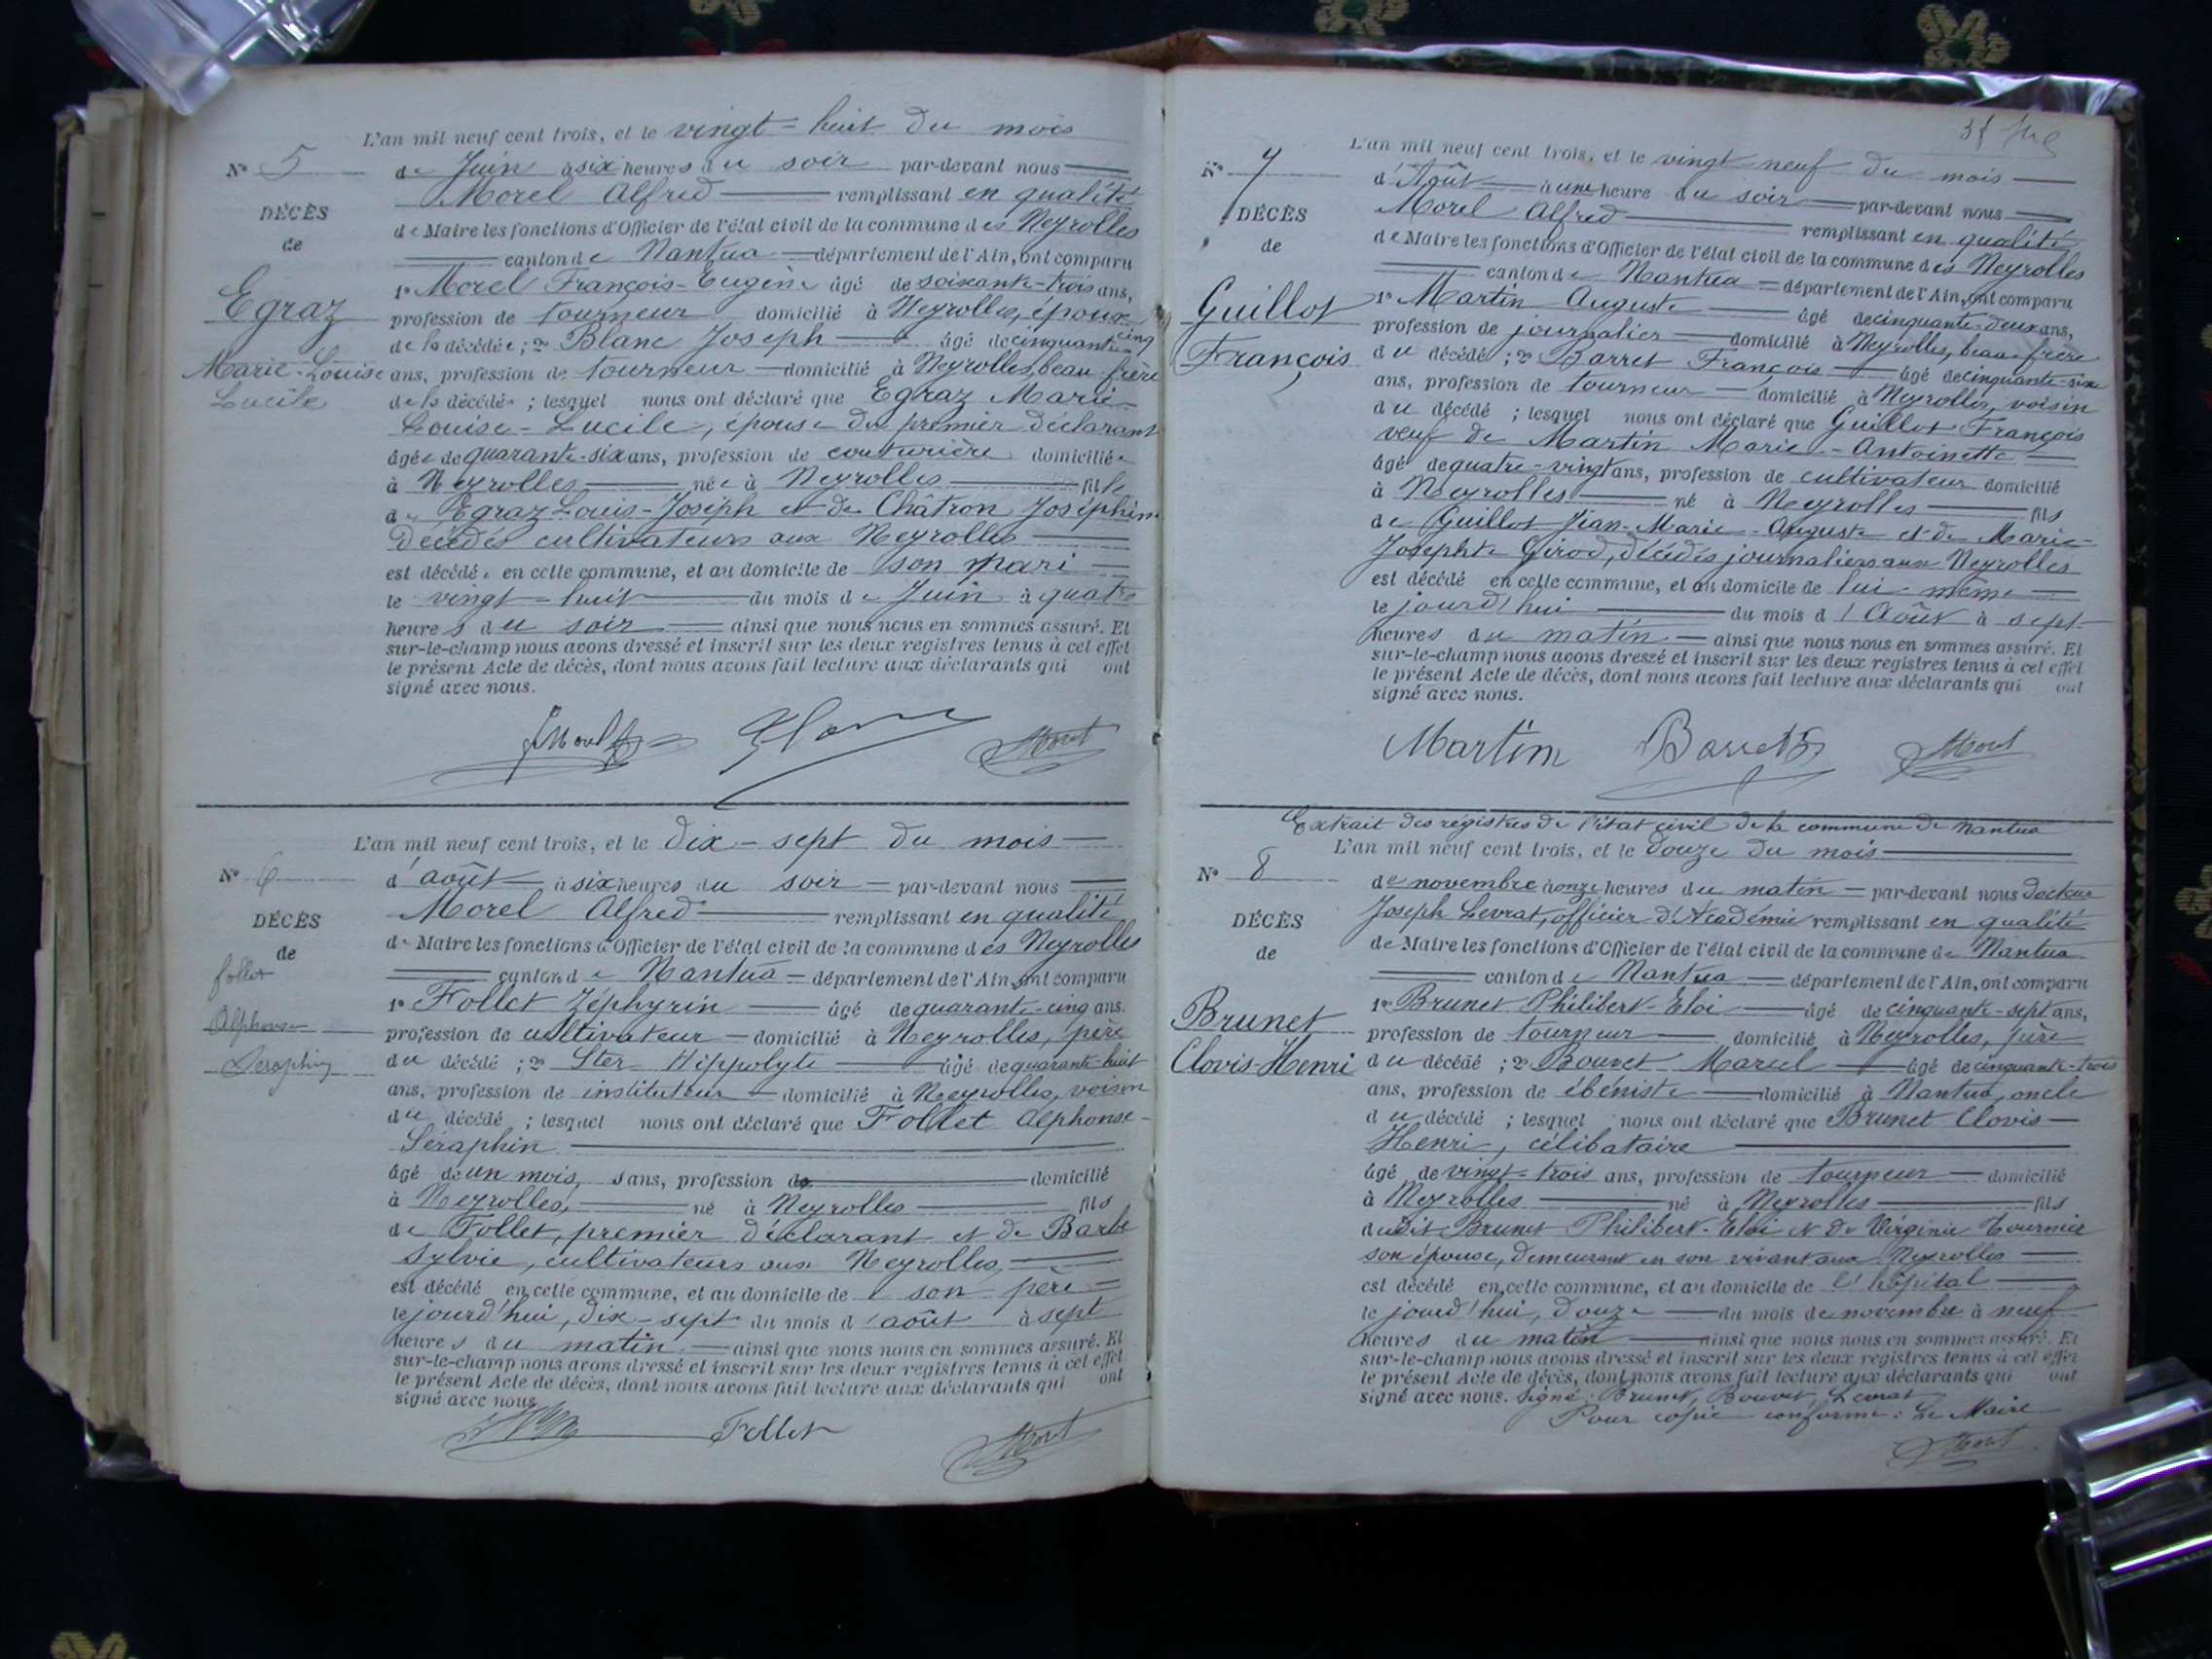 L'an mil neuf cent trois, et le vingt-huit du mois
N° 5
de Juin à six heures du soir par-devant nous
Morel Alfred remplissant en qualité
DÉCÈS
de Maire les fonctions d'Officier de l'état civil de la commune des Neyrolles
de
canton de Nantua département de l'Ain, ont comparu
1° Morel François-Eugène âgé de soixante-trois ans,
Egraz
profession de tourneur domicilié à Neyrolles, époux
de la décédée ; 2° Blanc Joseph âgé de cinquante-cinq
Marie-Louise
ans, profession de tourneur domicilié à Neyrolles, beau-frère
Lucile
de la décédée ; lesquel nous ont déclaré que Egraz Marie-
Louise-Lucile, épouse du premier déclarant
âgée de quarante-six ans, profession de couturière domiciliée
à Neyrolles née à Neyrolles fille
de Egraz Louis-Joseph et de Châtron Joséphine
décédés cultivateurs aux Neyrolles
est décédée en cette commune, et au domicile de son mari
le vingt-huit du mois de Juin à quatre
heures du soir ainsi que nous nous en sommes assuré. Et
sur-le-champ nous avons dressé et inscrit sur les deux registres tenus à cet effet
le présent Acte de décès, dont nous avons fait lecture aux déclarants qui ont
signé avec nous.
L'an mil neuf cent trois, et le dix-sept du mois
N° 6
d'août à six heures du soir par-devant nous
Morel Alfred remplissant en qualité
DÉCÈS
de Maire les fonctions d'Officier de l'état civil de la commune des Neyrolles
de
canton de Nantua département de l'Ain, ont comparu
follet
1° Follet Zéphyrin âgé de quarante-cinq ans.
Alphonse
profession de cultivateur domicilié à Neyrolles, père
Seraphin
du décédé ; 2° Ster Hippolyte âgé de quarante-huit
ans, profession de instituteur domicilié à Neyrolles, voisin
du décédé ; lesquel nous ont déclaré que Follet Alphonse-
Séraphin
âgé de un mois, sans, profession de domicilié
à Neyrolles, né à Neyrolles fils
de Follet, premier déclarant et de Barbe
Sylvie, cultivateurs aux Neyrolles,
est décédé en cette commune, et au domicile de son père
le jourd'hui, dix-sept du mois d'août à sept
heures du matin ainsi que nous nous en sommes assuré. Et
sur-le-champ nous avons dressé et inscrit sur les deux registres tenus à cet effet
le présent Acte de décès, dont nous avons fait lecture aux déclarants qui ont
signé avec nous
Follet
L'an mil neuf cent trois, et le vingt neuf du mois
N° 7
d'Août à une heure du soir par-devant nous
DÉCÈS
Morel Alfred remplissant en qualité
de
de Maire les fonctions d'Officier de l'état civil de la commune des Neyrolles
canton de Nantua département de l'Ain, ont comparu
Guillot
1° Martin Auguste âgé de cinquante-deux ans,
François
profession de journalier domicilié à Neyrolles, beau-frère
du décédé ; 2° Barret François âgé de cinquante-six
ans, profession de tourneur domicilié à Neyrolles, voisin
du décédé ; lesquel nous ont déclaré que Guillot François
veuf de Martin Marie-Antoinette
âgé de quatre-vingt ans, profession de cultivateur domicilié
à Neyrolles né à Neyrolles fils
de Guillot Jean-Marie-Auguste et de Marie-
Josephte Girod, décédés journaliers aux Neyrolles
est décédé en cette commune, et au domicile de lui-même
le jourd'hui du mois d'Août à sept
heures du matin ainsi que nous nous en sommes assuré. Et
sur-le-champ nous avons dressé et inscrit sur les deux registres tenus à cet effet
le présent Acte de décès, dont nous avons fait lecture aux déclarants qui ont
signé avec nous.
Martin Barret
Extrait des registres de l'état civil de la commune de Nantua
L'an mil neuf cent trois, et le douze du mois
N° 8
de novembre à onze heures du matin par-devant nous Docteur
Joseph Levrat, officier d'Académie remplissant en qualité
DÉCÈS
de Maire les fonctions d'Officier de l'état civil de la commune de Nantua
de
canton de Nantua département de l'Ain, ont comparu
Brunet
1° Brunet Philibert-Eloi âgé de cinquante-sept ans,
profession de tourneur domicilié à Neyrolles, père
Clovis-Henri
du décédé ; 2° Bouvet Marcel âgé de cinquante-trois
ans, profession de ébéniste domicilié à Nantua, oncle
du décédé ; lesquel nous ont déclaré que Brunet Clovis-
Henri, célibataire
âgé de vingt-trois ans, profession de tourneur domicilié
à Neyrolles né à Neyrolles fils
dudit Brunet Philibert-Eloi et de Virginie Tournier
son épouse, demeurant en son vivant aux Neyrolles
est décédé en cette commune, et au domicile de l'hôpital
le jourd'hui, douze du mois de novembre à neuf
heures du matin ainsi que nous nous en sommes assuré. Et
sur-le-champ nous avons dressé et inscrit sur les deux registres tenus à cet effet
le présent Acte de décès, dont nous avons fait lecture aux déclarants qui ont
signé avec nous. Signé : Brunet, Bouvet, Levrat
Pour copie conforme : Le Maire